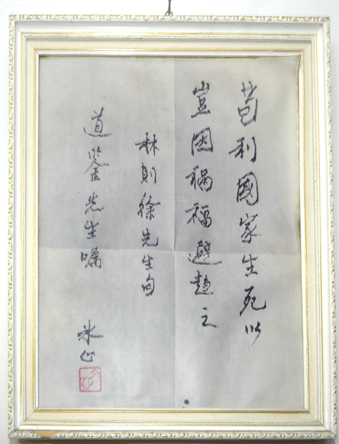 苟利國家生死以
豈因禍福避趨之
林則徐先生句
道鋻先生囑
冰心